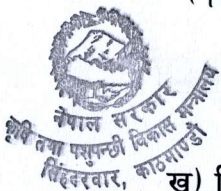 नेपाल सरकार
कृषि तथा पशुपन्छी विकास मन्त्रालय
सिंहदरवार, काठमाण्डौ
ख)